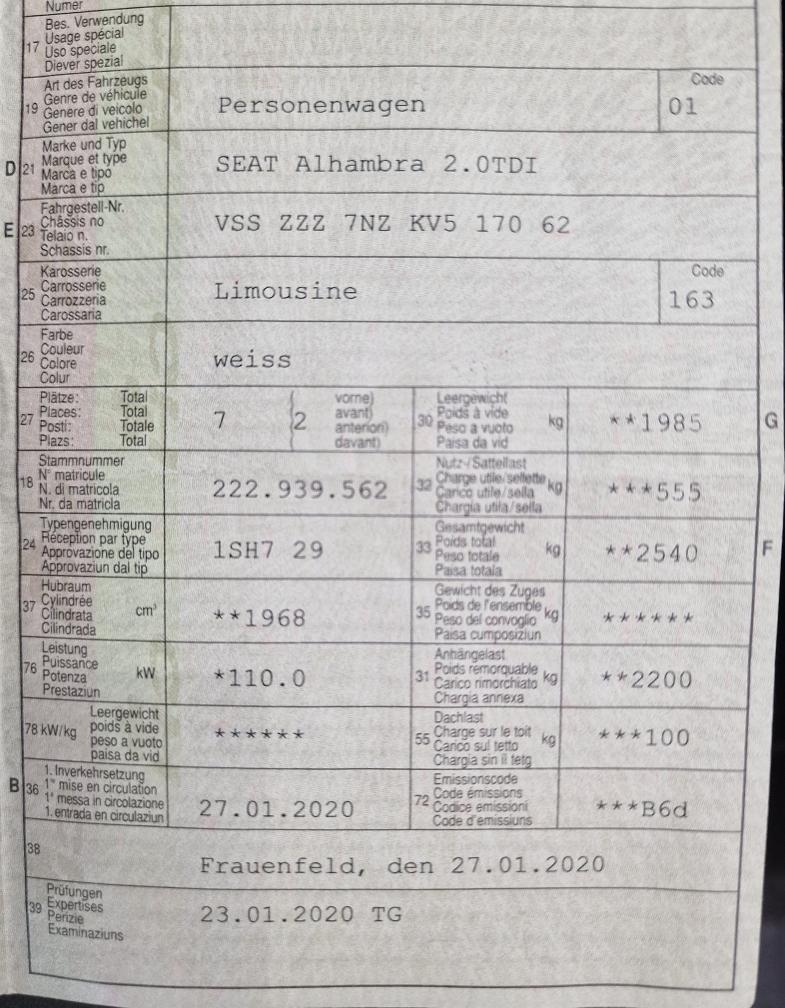 Numer
17 Bes. Verwendung
Usage spécial
Uso speciale
Diever spezial
19 Art des Fahrzeugs
Genre de véhicule
Genere di veicolo
Gener dal vehichel
Personenwagen
Code
01
D 21 Marke und Typ
Marque et type
Marca e tipo
Marca e tip
SEAT Alhambra 2.0TDI
E 23 Fahrgestell-Nr.
Châssis no
Telaio n.
Schassis nr.
VSS ZZZ 7NZ KV5 170 62
25 Karosserie
Carrosserie
Carrozzeria
Carossaria
Limousine
Code
163
26 Farbe
Couleur
Colore
Colur
weiss
27 Plätze: Total
Places: Total
Posti: Totale
Plazs: Total
7 (2 vorne)
avant)
anteriori)
davant)
30 Leergewicht
Poids à vide
Peso a vuoto
Paisa da vid
kg
**1985
G
18 Stammnummer
N° matricule
N. di matricola
Nr. da matricla
222.939.562
32 Nutz-/Sattellast
Charge utile/sellette
Carico utile/sella
Chargia utila/sella
kg
***555
24 Typengenehmigung
Réception par type
Approvazione del tipo
Approvaziun dal tip
1SH7 29
33 Gesamtgewicht
Poids total
Peso totale
Paisa totala
kg
**2540
F
37 Hubraum
Cylindrée
Cilindrata
Cilindrada
cm³
**1968
35 Gewicht des Zuges
Poids de l'ensemble
Peso del convoglio
Paisa cumposiziun
kg
******
76 Leistung
Puissance
Potenza
Prestaziun
kW
*110.0
31 Anhängelast
Poids remorquable
Carico rimorchiato
Chargia annexa
kg
**2200
78 kW/kg Leergewicht
poids à vide
peso a vuoto
paisa da vid
******
55 Dachlast
Charge sur le toit
Carico sul tetto
Chargia sin il tetg
kg
***100
B 36 1. Inverkehrsetzung
1re mise en circulation
1a messa in circolazione
1. entrada en circulaziun
27.01.2020
72 Emissionscode
Code émissions
Codice emissioni
Code d'emissiuns
***B6d
38
Frauenfeld, den 27.01.2020
39 Prüfungen
Expertises
Perizie
Examinaziuns
23.01.2020 TG